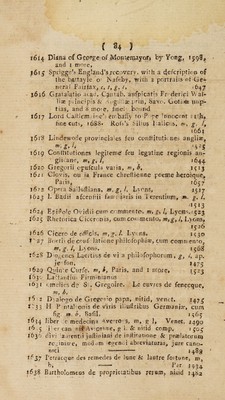 ( 84 )
1614 Diana of George of Montemayor, by Yong, 1598,
and 1 more,
1615 Sprigge's England's recovery, with a description of
the battayle of Naseby, with a portraits of Ge-
neral Fairfax, 1647
1616 Gratulatio Acad. Cantab. auspicatis Frederici Wal-
liæ principis & Augustæ prin. Saxo. Gothæ nup-
tias, and 8 more, finely bound
1617 Lord Castlemaine's embassy to Pope Innocent
fine cuts, 1688. Ross's Silius Italicus, m. g. l.
1661
1618 Lindewode provinciales seu constitutiones angliæ,
m. g. l. 1525
1619 Constitutiones legitime seu legatine regionis an-
glicanæ, m, g, l, 1644
1620 Gregorii opuscula varia, m, h, 1515
1621 Clovis, ou la France chrestienne poeme heroique,
Paris, 1657
1622 Opera Sallustiana, m, g, l, Lyons, 1517
1623 J. Badii ascensii familiaris in Terentium, m, g, l,
1624 Epistolæ Ovidii cum commento, m. g. l, Lyons, 1523
1625 Rhetorica Ciceronis, cum commento, m, g, l, Lyons,
1526
1626 Cicero de officiis, m, g, l, Lyons, 1530
1627 Boetii de consolatione philosophiæ, cum commento,
m, g, l, Lyons, 1508
1628 Diogenes Laertius de vita philosophorum, g, l, ap.
1629 Quinte Curse, m, h, Paris, and 1 more, 1525
1630 Lactantius Firmianus
1631 Omelies de St. Gregoire. Le euvres de senecque,
m, h,
Dialogo de Gregorio papa, nitid, venet. 1475
1633 H Pantaleonis de viris illustribus Germaniæ, cum
fig. m. h. Basil. 1565
1634 liber medecina averrois, m, g, l, Venet. 1490
1635 g. l. & nitid comp, 1505
1636 justiniani de institutione & prælatorum
re, imore, modum legendi abreviaturas, jure cano-
nici 1482
1637 Petracque des remedes de lune & lautre fortune, m,
h, Par 1534
1638 Bartholomeus de proprietatibus rerum, nitid 1482